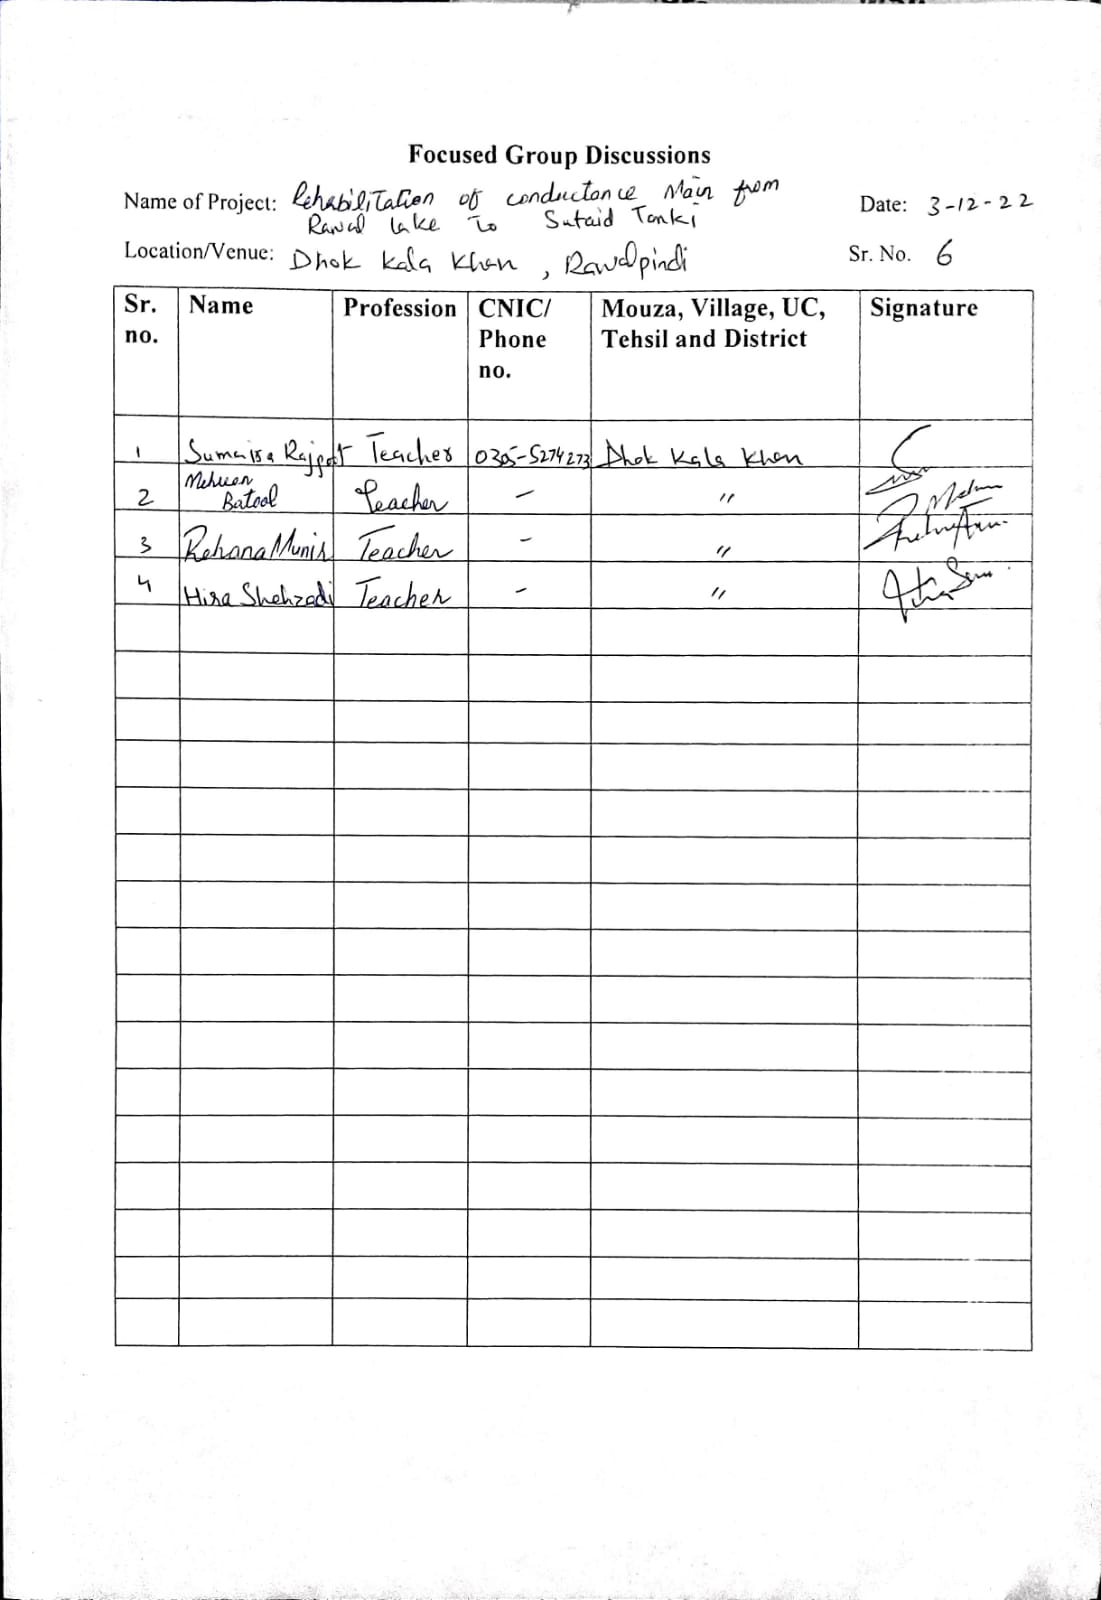 Focused Group Discussions
Name of Project: Rehabilitation of conductance Main from
Rawal lake To Sutaid Tanki
Date: 3-12-22
Location/Venue: Dhok Kala Khan, Rawalpindi
Sr. No. 6
Sr. no. Name Profession CNIC/ Phone no. Mouza, Village, UC, Tehsil and District Signature
1 Sumaira Rajpot Teacher 0305-5274273 Dhok Kala Khan
2 Mehreen Batool Teacher - "
3 Rehana Munir Teacher - "
4 Hira Shehzadi Teacher - "